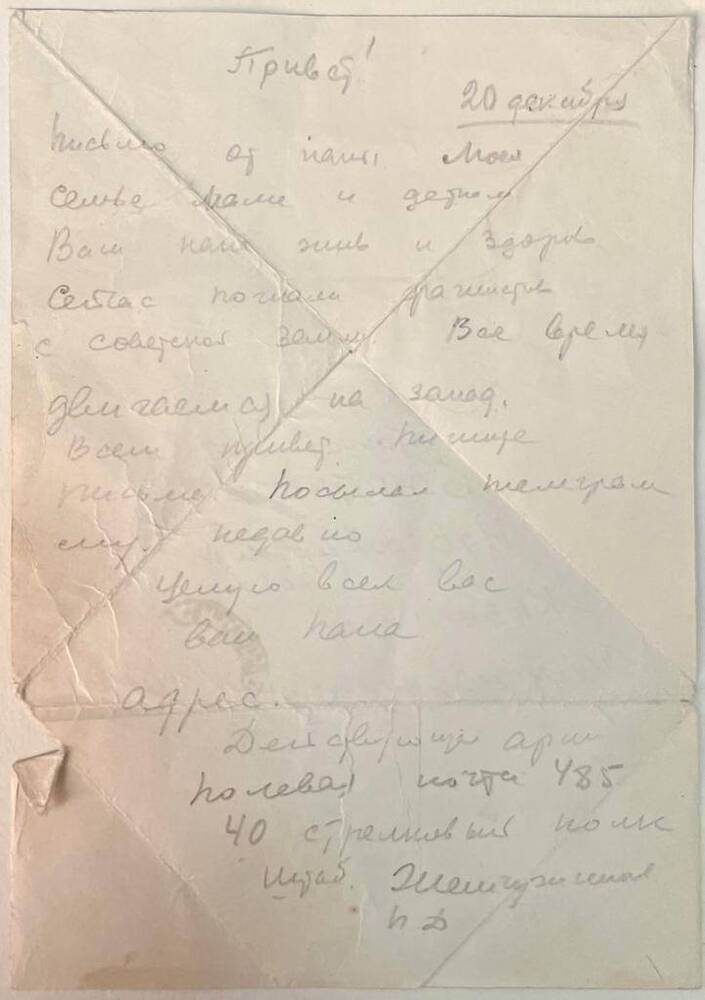 Привет!
20 декабря
Письмо от папы Моей
семье маме и деткам
Ваш папа жив и здоров
Сейчас погнали фашистов
с советской земли. Все время
двигаемся на запад.
Всем привет пишите
письма посылал телеграм
му. недавно
целую всех вас
ваш папа
адрес.
Действующая арми
полевая почта 485
40 стрелковый полк
Штаб.
П Д